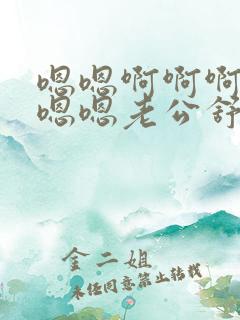 嗯嗯啊啊啊
嗯嗯老公舒
金二姐
未经同意禁止转载